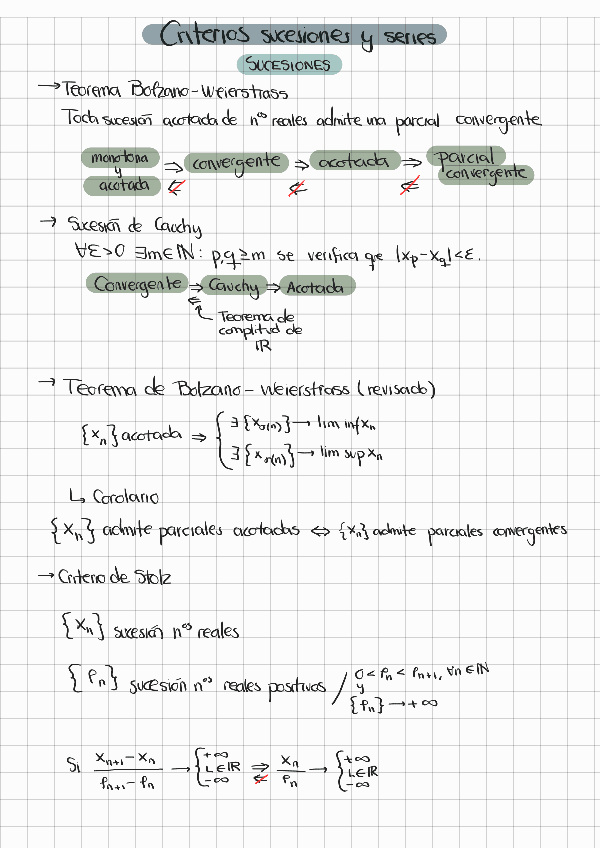 Criterios sucesiones y series
SUCESIONES
→ Teorema Bolzano-Weierstrass
Toda sucesión acotada de nos reales admite una parcial convergente
monótona y acotada ⇒ convergente ⇒ acotada ⇒ parcial convergente
⇍ ⇍ ⇍
→ Sucesión de Cauchy
∀ε>0 ∃m∈ℕ: p,q ≥ m se verifica que |xp-xq|<ε.
Convergente ⇒ Cauchy ⇒ Acotada
⇐
Teorema de
complitud de
ℝ
→ Teorema de Bolzano-Weierstrass (revisado)
{xn} acotada ⇒ { ∃{xσ(n)} → lim inf xn
∃{xσ(n)} → lim sup xn
↳ Corolario
{xn} admite parciales acotadas ⇔ {xn} admite parciales convergentes
→ Criterio de Stolz
{xn} sucesión nos reales
{ρn} sucesión nos reales positivos / 0 < ρn < ρn+1, ∀n∈ℕ
y
{ρn} → +∞
Si (xn+1 - xn)/(ρn+1 - ρn) → { +∞ L∈ℝ -∞ ⇒ ⇍ xn/ρn → { +∞ L∈ℝ -∞